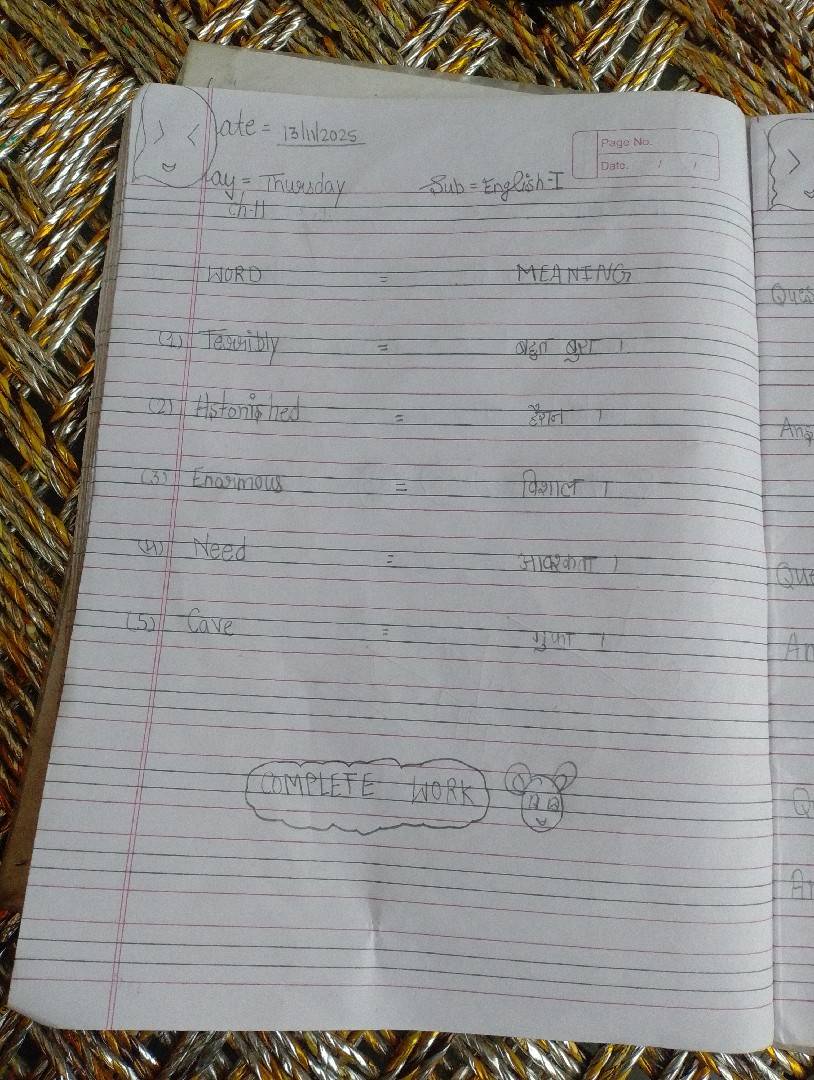 Date = 13/11/2025
Page No.
Date. / /
Day = Thursday Sub = English-I
Ch-11
WORD = MEANING
(1) Terribly = बहुत बुरा ।
(2) Astonished = हैरान ।
(3) Enormous = विशाल ।
(4) Need = आवश्कता ।
(5) Cave = गुफा ।
COMPLETE WORK
Ques
Ans
Que
An
Q
An